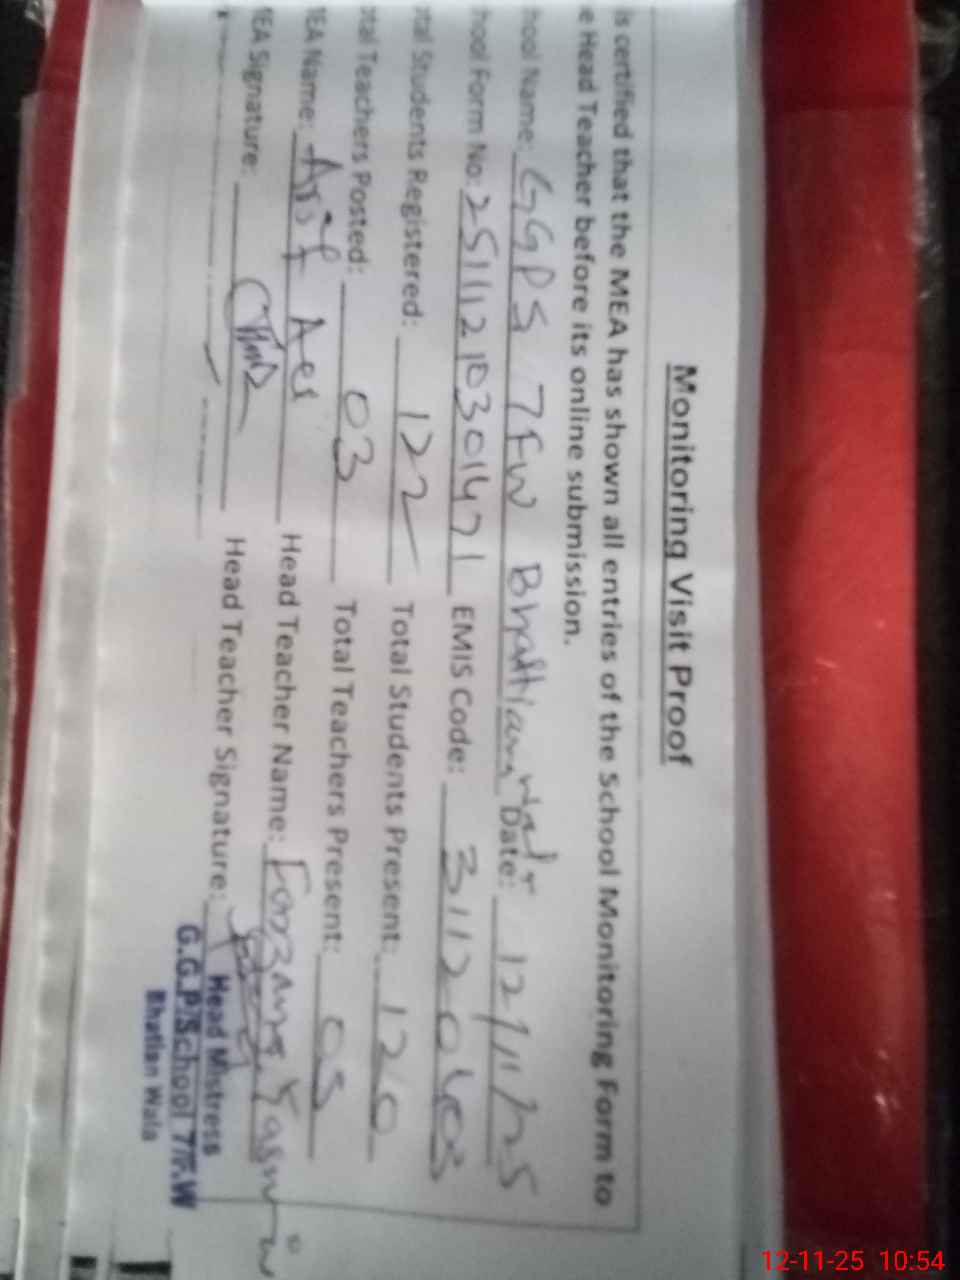 Monitoring Visit Proof
is certified that the MEA has shown all entries of the School Monitoring Form to
e Head Teacher before its online submission.
hool Name: GGPS 7FW Bhattian Wala Date: 12/11/25
hool Form No: 25111210301471 EMIS Code: 31120403
tal Students Registered: 122 Total Students Present: 120
otal Teachers Posted: 03 Total Teachers Present: 03
MEA Name: Asif Head Teacher Name: Fozana Yasmin
MEA Signature: Head Teacher Signature:
Head Mistress
G.G.P/School 7/F.W
Bhatian Wala
12-11-25 10:54